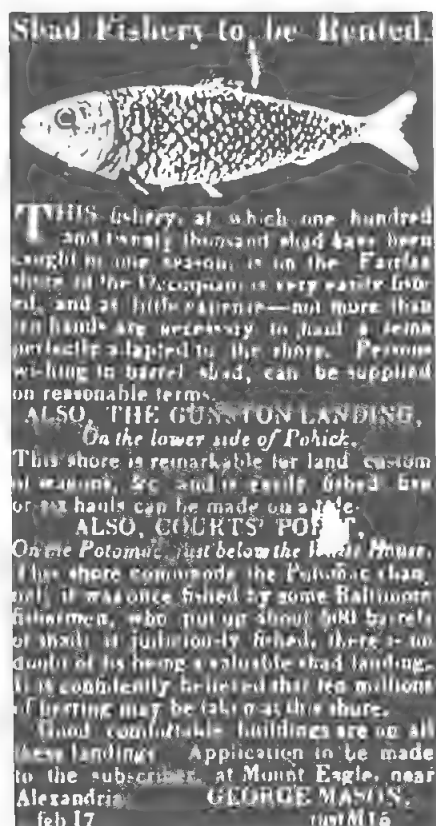 Shad Fishery to be Rented.
THIS fishery, at which one hundred
and twenty thousand shad have been
caught in one season, is on the Fairfax
shore of the Occoquan is very easily fish-
ed, and at little expense—not more than
ten hands are necessary to haul a seine
perfectly adapted to the shore. Persons
wishing to barrel shad, can be supplied
on reasonable terms.
ALSO, THE GUNSTON LANDING,
On the lower side of Pohick.
This shore is remarkable for land custom
of waggons, &c and is easily fished five
or six hauls can be made on a tide.
ALSO, COURTS' POINT,
On the Potomac, just below the White House.
This shore commands the Potomac chan-
nel; it was once fished by some Baltimore
fishermen, who put up about 600 barrels
of shad; if judiciously fished, there is no
doubt of its being a valuable shad landing.
It is confidently believed that ten millions
of herring may be taken at this shore.
Good comfortable buildings are on all
these landings. Application to be made
to the subscriber, at Mount Eagle, near
Alexandria GEORGE MASON,
feb 17